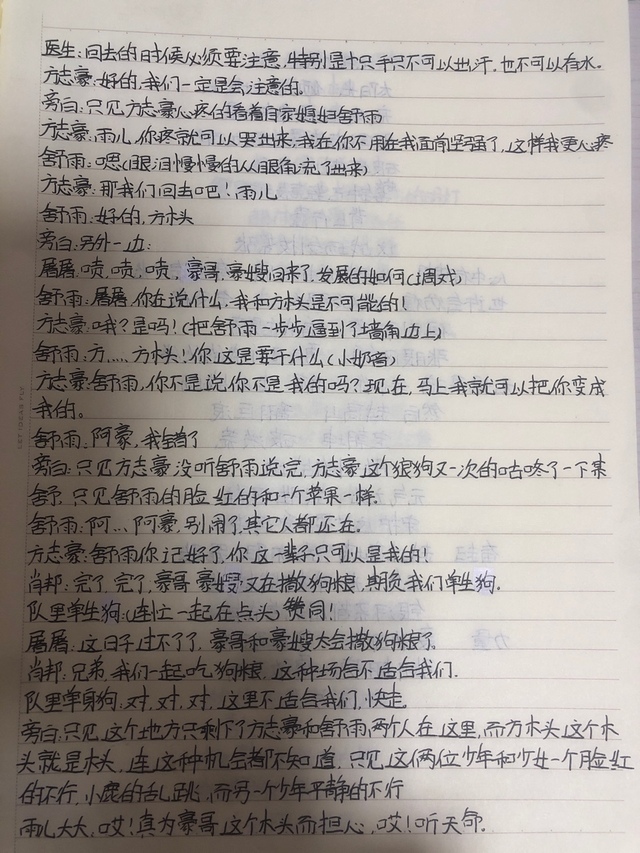 医生：回去的时候必须要注意，特别是十只手只不可以出汗，也不可以有水。
方志豪：好的，我们一定是会注意的。
旁白：只见方志豪心疼的看着自家媳妇舒雨
方志豪：雨儿，你疼就可以哭出来，我在你不用在我面前坚强了，这样我更心疼
舒雨：嗯（眼泪慢慢的从眼角流了出来）
方志豪：那我们回去吧！雨儿
舒雨：好的，方木头
旁白：另外一边：
屠屠：啧，啧，啧，豪哥，豪嫂回来了，发展的如何（调戏）
舒雨：屠屠，你在说什么，我和方木头是不可能的！
方志豪：哦？是吗！（把舒雨一步步逼到了墙角边上）
舒雨：方.....方木头！你这是要干什么（小奶音）
方志豪：舒雨，你不是说你不是我的吗？现在，马上我就可以把你变成
我的。
舒雨：阿豪，我错了
旁白：只见方志豪没听舒雨说完，方志豪这个狼狗又一次的咕咚了一下来
舒，只见舒雨的脸红的和一个苹果一样。
舒雨：阿...阿豪，别闹了，其它人都还在。
方志豪：舒雨你记好了，你这一辈子只可以是我的！
肖邦：完了，完了，豪哥豪嫂又在撒狗粮，欺负我们单生狗。
队里单生狗：（连忙一起在点头）赞同！
屠屠：这日子过不了了，豪哥和豪嫂太会撒狗粮了。
肖邦：兄弟，我们一起吃狗粮，这种场合不适合我们.
队里单身狗：对，对，对，这里不适合我们，快走。
旁白：只见，这个地方只剩下了方志豪和舒雨，两个人在这里，而方木头这个木
头就是木头，连这种机会都不知道，只见，这俩位少年和少女一个脸红
的不行，小鹿的乱跳，而另一个少年平静的不行
雨儿大大，哎！真为豪哥这个木头而担心，哎！听天命.
LET IDEAS FLY